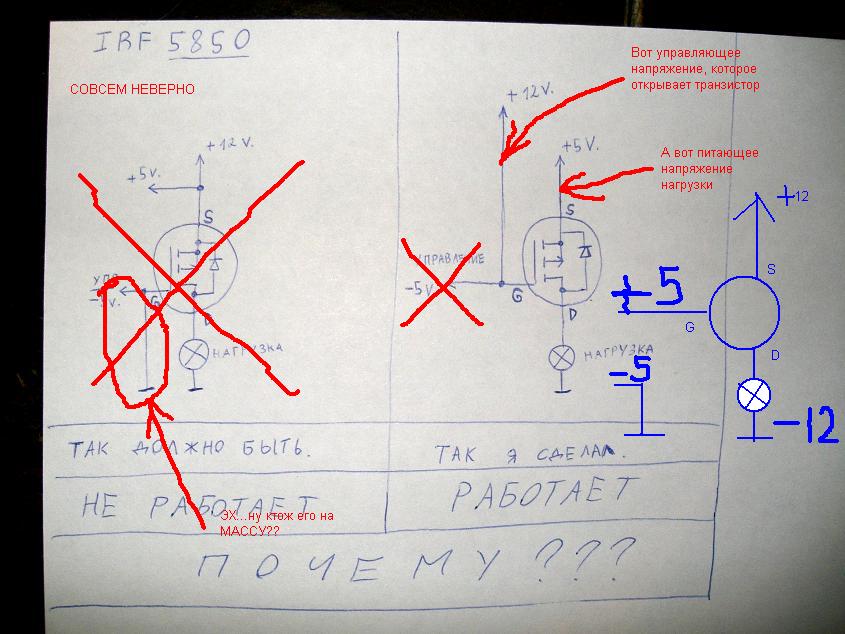 IRF 5850
СОВСЕМ НЕВЕРНО
+12V.
+5V.
S
УПР
-5V.
G
D
НАГРУЗКА
ТАК ДОЛЖНО БЫТЬ.
НЕ РАБОТАЕТ
ЭХ...ну ктож его на
МАССУ??
Вот управляющее
напряжение, которое
открывает транзистор
+12V.
+5V.
А вот питающее
напряжение
нагрузки
S
УПРАВЛЕНИЕ
-5V
G
D
НАГРУЗКА
ТАК Я СДЕЛАЛ.
РАБОТАЕТ
+12
S
+5
G
D
-5
-12
ПОЧЕМУ???